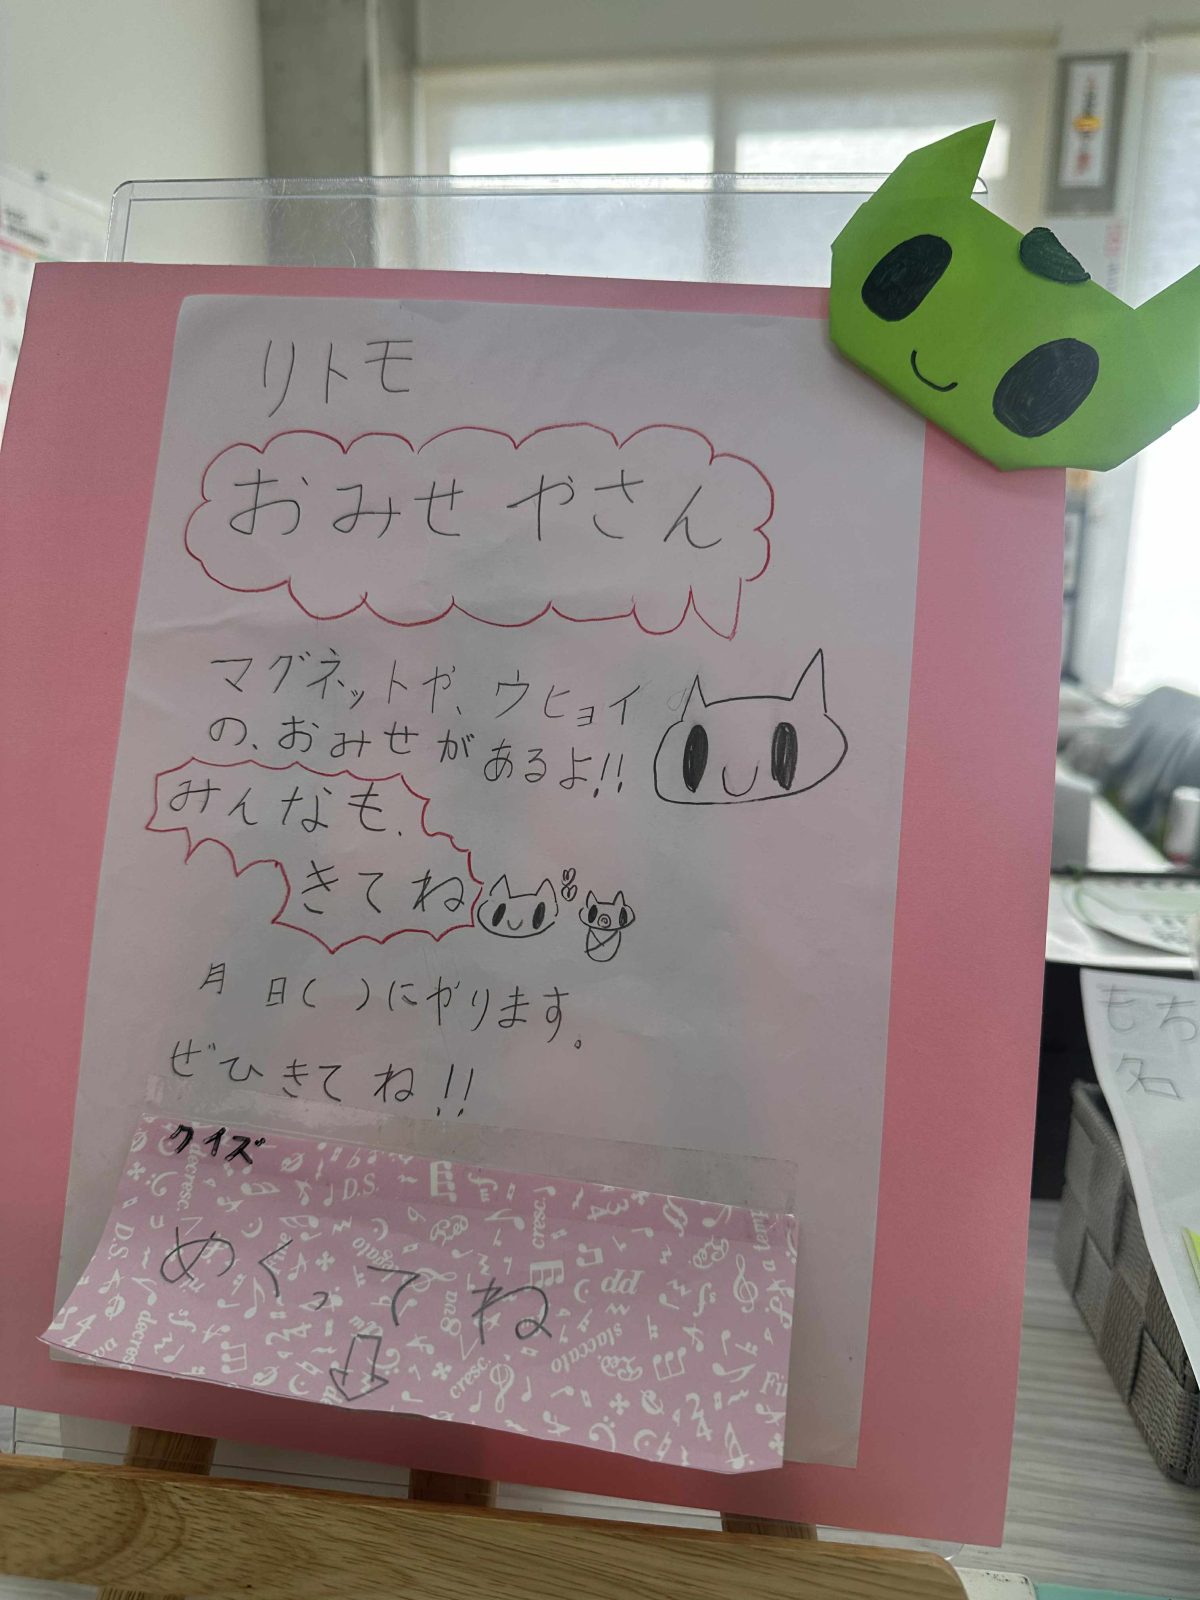 リトモ
おみせやさん
マグネットや、ウヒョイ
の、おみせがあるよ!!
みんなも、
きてね
月 日( )にやります。
ぜひきてね!!
クイズ
めくってね
もち